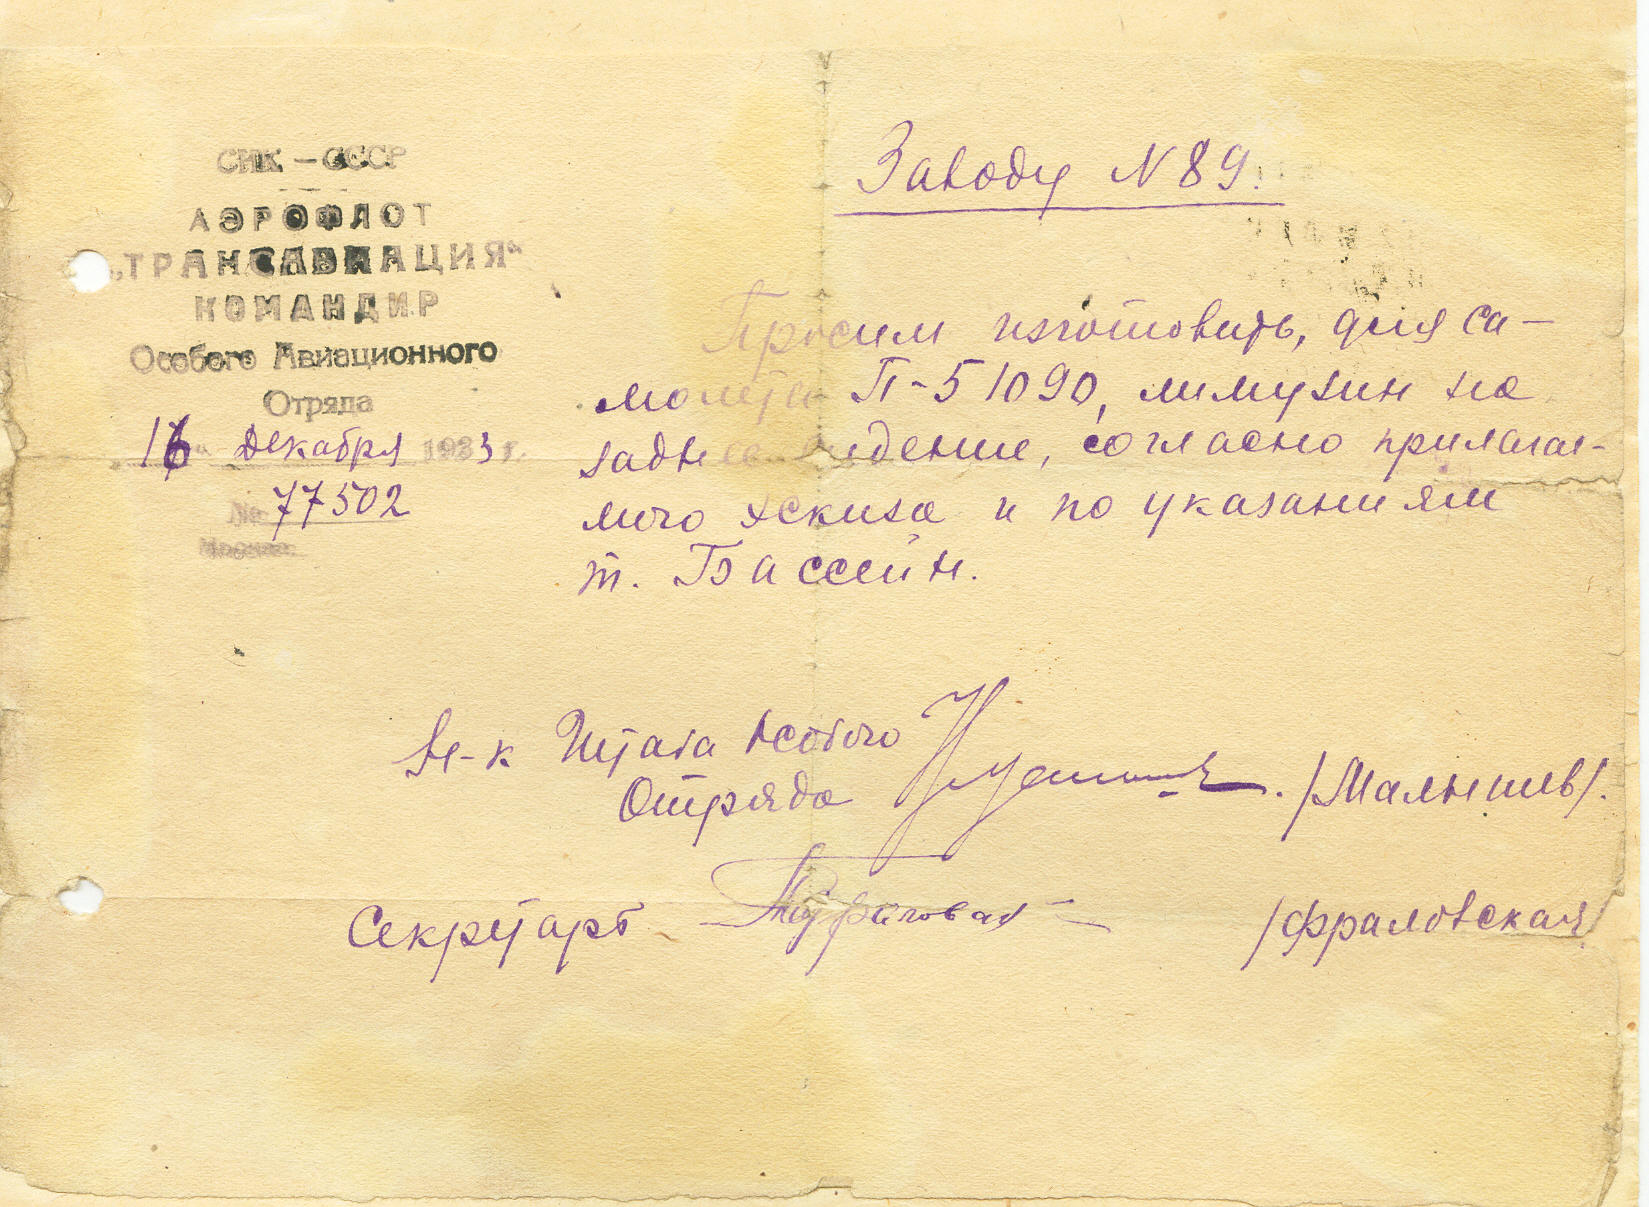 СНК – СССР
АЭРОФЛОТ
„ТРАНСАВИАЦИЯ“
КОМАНДИР
Особого Авиационного
Отряда
„16“ Декабря 1933 г.
№ 77502
Москва.
Заводу N 89.
Просим изготовить, для са-
молета П-5 1090, лимузин на
заднее сидение, согласно прилагае-
мого эскиза и по указаниям
т. Бассейн.
Н-к Штаба Особого
Отряда /Малышев/.
Секретарь /Фраловская/